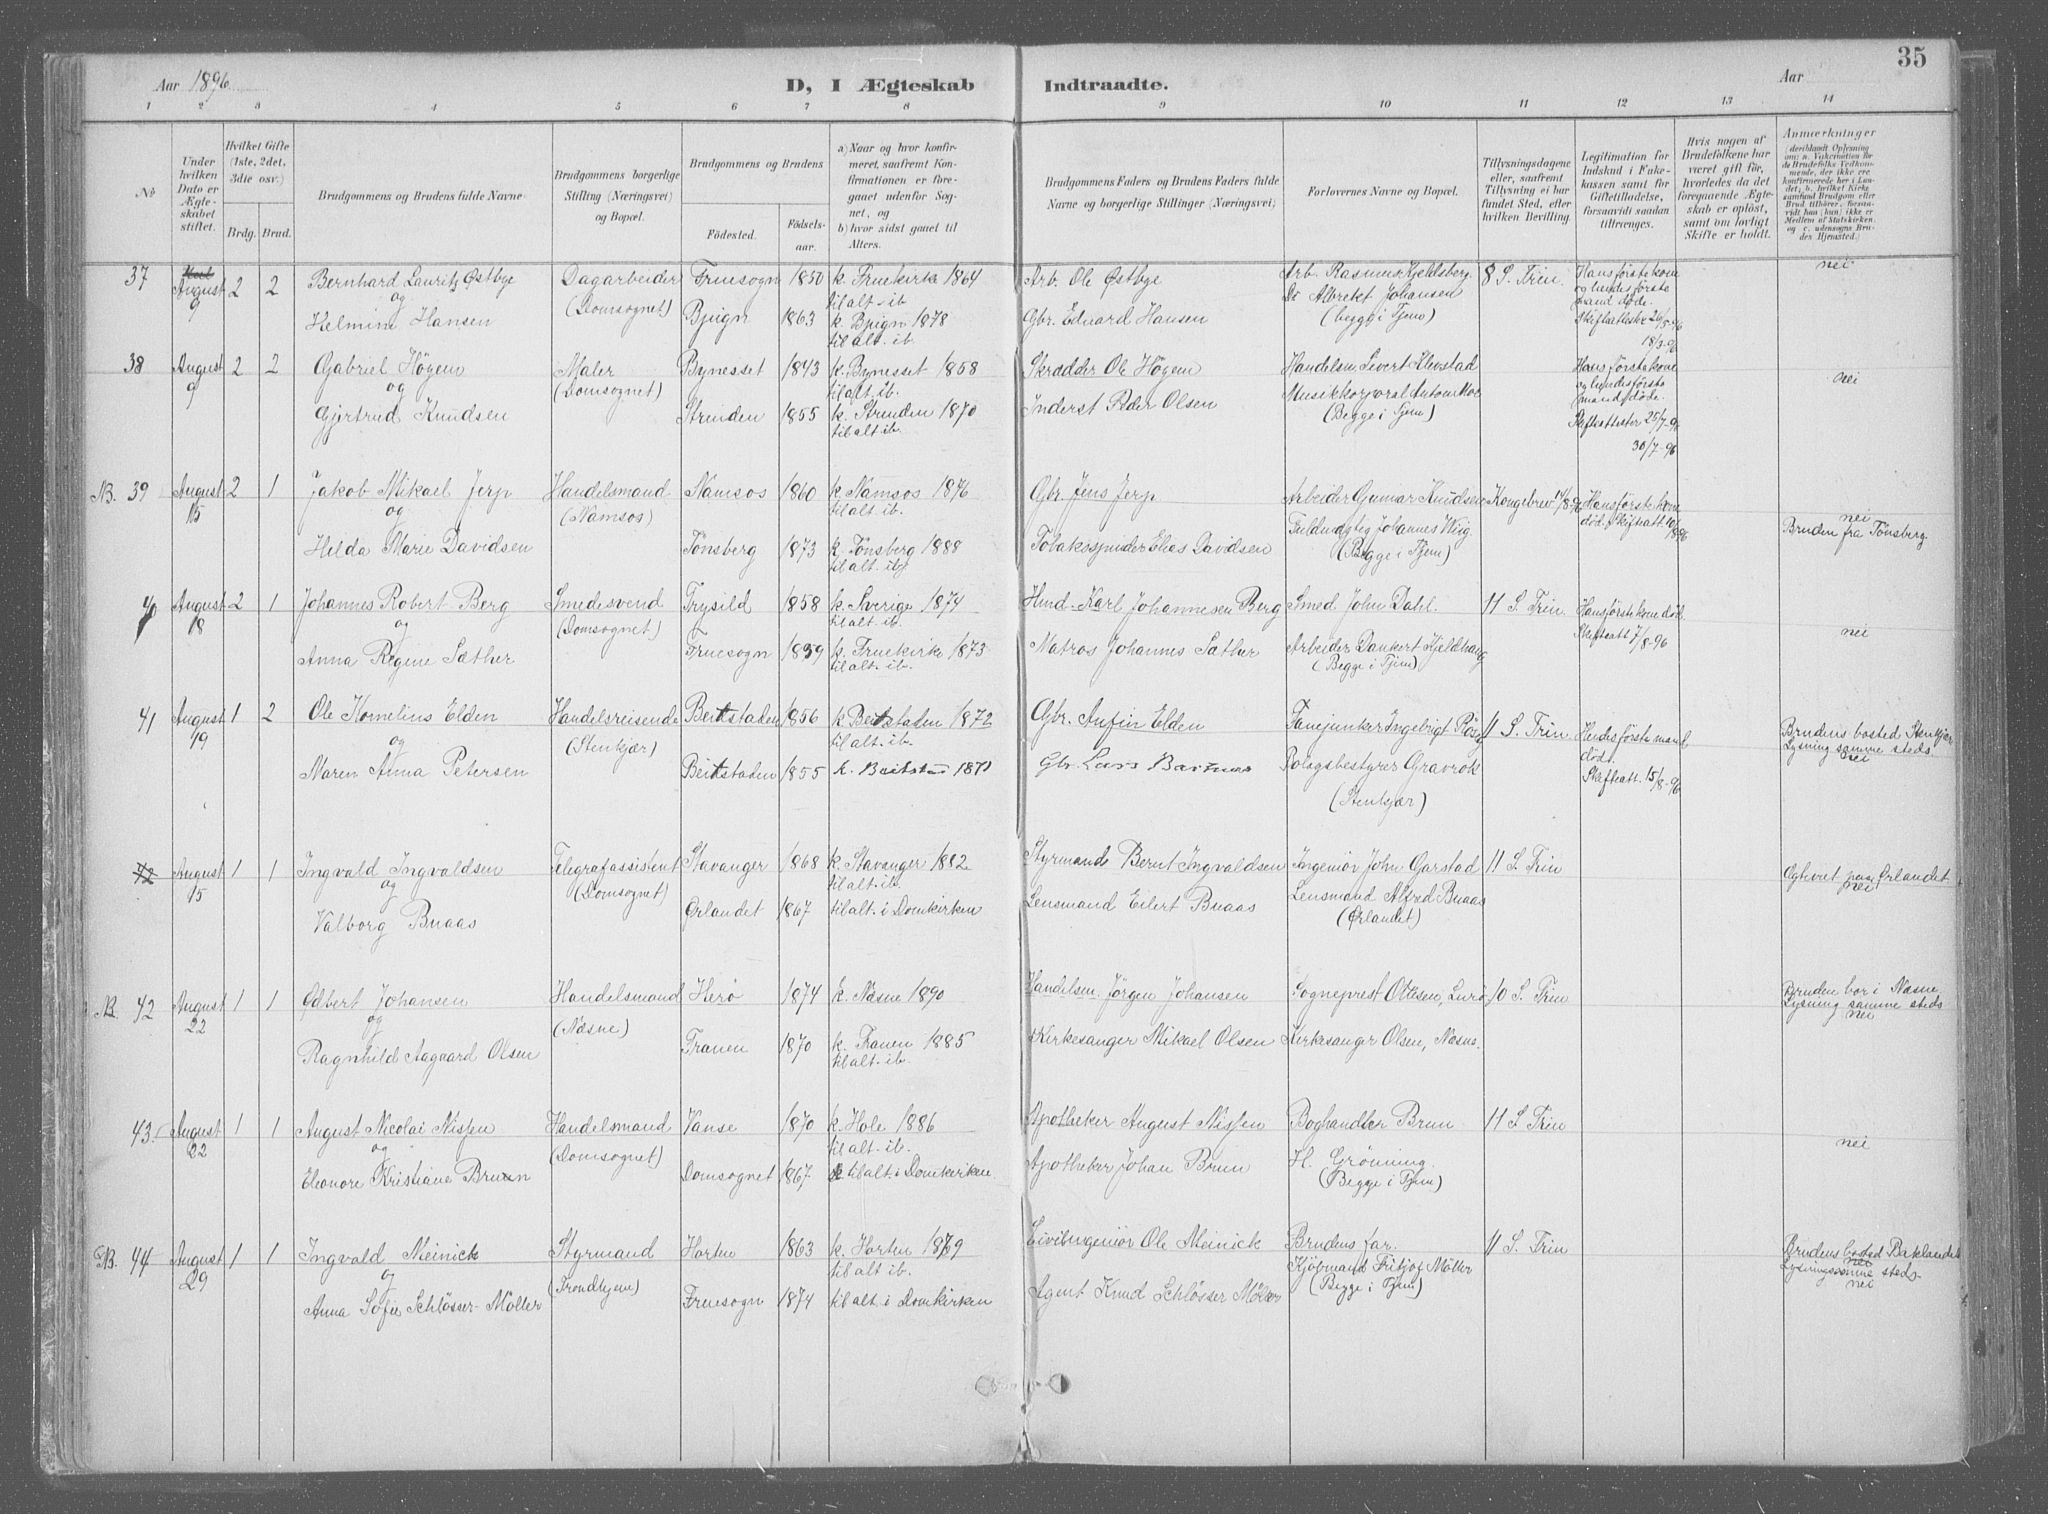 35
Aar 1896
D, I Ægteskab Indtraadte.
Aar
1 2 3 4 5 6 7 8 9 10 11 12 13 14
No
Under hvilken Dato er Ægteskabet stiftet.
Hvilket Gifte (1ste, 2det, 3die osv.)
Brdg. Brud.
Brudgommens og Brudens fulde Navne
Brudgommens borgerlige Stilling (Næringsvei) og Bopæl.
Brudgommens og Brudens
Födested. Födselsaar.
a) Naar og hvor konfirmeret, saafremt Konfirmationen er foregaaet udenfor Sognet, og
b) hvor sidst gaaet til Alters.
Brudgommens Faders og Brudens Faders fulde Navne og borgerlige Stillinger (Næringsvei)
Forlovernes Navne og Bopæl.
Tillysningsdagene eller, saafremt Tillysning ei har fundet Sted, efter hvilken Bevilling.
Legitimation for Indskud i Enkekassen samt for Giftetilladelse, forsaavidt saadan tiltrænges.
Hvis nogen af Brudefolkene har været gift før, hvorledes da det foregaaende Ægteskab er opløst, samt om lovligt Skifte er holdt.
Anmærkninger
37 August 9 2 2 Bernhard Lauritz Østbye Dagarbeider Fruesogn 1850 k. Fruekirke 1864 Arb. Ole Østbye Arb. Rasmus Kjeldsberg 8 S. Trin. Hans første kone nei
og (Domsognet) til alt. ib. Do Albrekt Johansen og hendes første mand døde.
Helmine Hansen Bjugn 1863 k. Bjugn 1878 Gbr. Edvard Hansen (begge i Tjem) Skifteattester 26/5-96
til alt. ib. 18/3-96
38 August 9 2 2 Gabriel Högem Maler Bynesset 1843 k. Bynesset 1858 Skrædder Ole Högem Handelsm. Sivert Klevstad Hans første kone nei
og (Domsognet) til alt. ib. Musikkorporal Anton Moe og hendes første mand døde.
Gjertrud Knudsen Strinden 1855 k. Strinden 1870 Inderst Peder Olsen (Begge i Tjem) Skifteattester 25/7-96
til alt. ib. 30/7-96
NB. 39 August 15 2 1 Jakob Mikael Jerp Handelsmand Namsos 1860 k. Namsos 1876 Gbr. Jens Jerp Arbeider Gunnar Knudsen Kongebrev 14/8-96 Hans første kone nei
og (Namsos) til alt. ib. Fuldmægtig Johannes Wiig død. Skifteatt. 10/8 96 Bruden fra Tönsberg.
Hilda Marie Davidsen Tönsberg 1873 k. Tönsberg 1888 Tobakspinder Elias Davidsen (Begge i Tjem)
til alt. ib.
40 August 18 2 1 Johannes Robert Berg Smedesvend Trysild 1858 k. Sverige 1874 Hmd. Karl Johannesen Berg Smed John Dahl. 11 S. Trin. Hans første kone död.
og (Domsognet) til alt. ib. Skifteatt 7/8-96 nei
Anna Regine Sæther Fruesogn 1859 k. Fruekirke 1873 Matros Johannes Sæther Arbeider Dankert Kjeldhaug
til alt. ib. (Begge i Tjem)
41 August 19 1 2 Ole Kornelius Elden Handelsreisende Beitstaden 1856 k. Beitstaden 1872 Gbr. Anfin Elden Fanejunker Ingebrigt 11 S. Trin. Hendes første mand Brudens bosted Stenkjær
og (Stenkjær) til alt. ib. død. Lysning samme steds.
Maren Anna Petersen Beitstaden 1855 k. Beitstad 1870 Gbr. Lars Bartnes Bolagsbestyrer Gravrok Skifteatt. 15/8-96 nei
(Stenkjær)
42 August 15 1 1 Ingvald Ingvaldsen Telegrafassistent Stavanger 1868 k. Stavanger 1882 Styrmand Bernt Ingvaldsen Ingeniør John Garstad 11 S. Trin Ogtevet paa Ørlandet
og (Domsognet) til alt. ib. Lensmand Alfred Buaas nei
Valborg Buaas Ørlandet 1867 til alt. i Domkirken Lensmand Eilert Buaas (Ørlandet)
NB. 42 August 22 1 1 Edbert Johansen Handelsmand Herö 1874 k. Næsne 1890 Handelsm. Jörgen Johansen Sogneprest Ottesen, Lurö 10 S. Trin Bruden bor i Næsne
og (Næsne) Lysning samme steds
Ragnhild Aagaard Olsen Tranen 1870 k. Tranen 1885 Kirkesanger Mikael Olsen Kirkesanger Olsen, Næsne. nei
til alt. ib.
43 August 22 1 1 August Nicolai Nissen Handelsmand Vanse 1870 k. Hole 1886 Apotheker August Nissen Boghandler Brun 11 S Trin nei
og (Domsognet) til alt. ib. H. Grönning.
Eleonore Kristiane Bruun Domsognet 1867 til alt. i Domkirken. Apotheker Johan Brun (Begge i Tjem)
NB. 44 August 29 1 1 Ingvald Meinick Styrmand Horten 1863 k. Horten 1879 Civilingeniør Ole Meinick Brudens far. 11 S. Trin Brudens bosted Baklandet
og (Trondhjem) til alt ib. Kjøbmand Fritjof Möller Lysning samme steds.
Anna Sofie Schlösser-Möller Fruesogn 1874 til alt i Domkirken Agent Knud Schlösser Möller (Begge i Tjem) nei